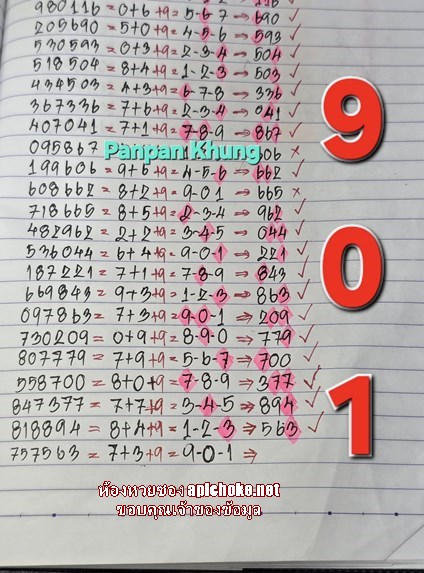 980116 = 0+6+9= 5-6-7 ⇒ 690 ✓
205690 = 5+0+9= 4-5-6 ⇒ 593 ✓
530593 = 0+3+9= 2-3-4 ⇒ 504 ✓
518504 = 8+4+9= 1-2-3 ⇒ 503 ✓
434503 = 4+3+9= 6-7-8 ⇒ 336 ✓
367336 = 7+6+9= 2-3-4 ⇒ 041 ✓
407041 = 7+1+9= 7-8-9 ⇒ 867 ✓
9
095867
Panpan Khung
606 ×
199606 = 9+6+9= 4-5-6 ⇒ 662 ✓
608662 = 8+2+9= 9-0-1 ⇒ 665 ×
718665 = 8+5+9= 2-3-4 ⇒ 962 ✓
482962 = 2+2+9= 3-4-5 ⇒ 044 ✓
536044 = 6+4+9= 9-0-1 ⇒ 221 ✓
187221 = 7+1+9= 7-8-9 ⇒ 843 ✓
0
669843 = 9+3+9= 1-2-3 ⇒ 863 ✓
097863 = 7+3+9= 9-0-1 ⇒ 209 ✓
730209 = 0+9+9= 8-9-0 ⇒ 779 ✓
807779 = 7+9+9= 5-6-7 ⇒ 700 ✓
558700 = 8+0+9= 7-8-9 ⇒ 377 ✓
847377 = 7+7+9= 3-4-5 ⇒ 894 ✓
818894 = 8+4+9= 1-2-3 ⇒ 563 ✓
1
757563 = 7+3+9= 9-0-1 ⇒
ห้องหวยซอง apichoke.net
ขอบคุณเจ้าของข้อมูล